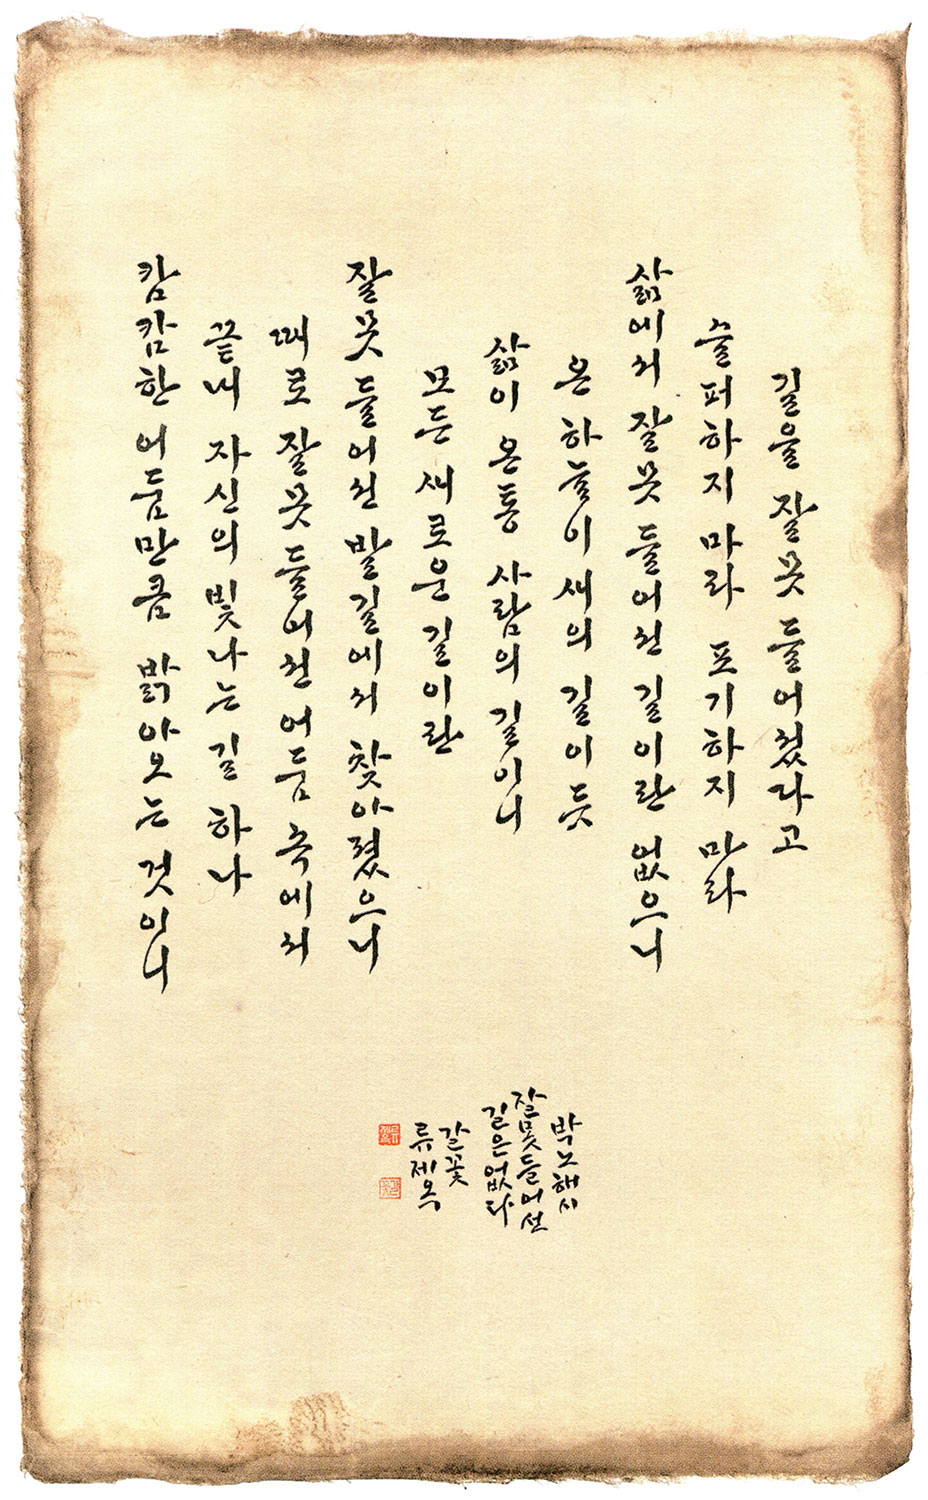 길을 잘못 들어섰다고
슬퍼하지 마라 포기하지 마라
삶에서 잘못 들어선 길이란 없으니
온 하늘이 새의 길이듯
삶이 온통 사람의 길이니
모든 새로운 길이란
잘못 들어선 발길에서 찾아졌으니
때로 잘못 들어선 어둠 속에서
끝내 자신의 빛나는 길 하나
캄캄한 어둠만큼 밝아오는 것이니
박노해 시
잘못 들어선
길은 없다
갈꽃
류제옥